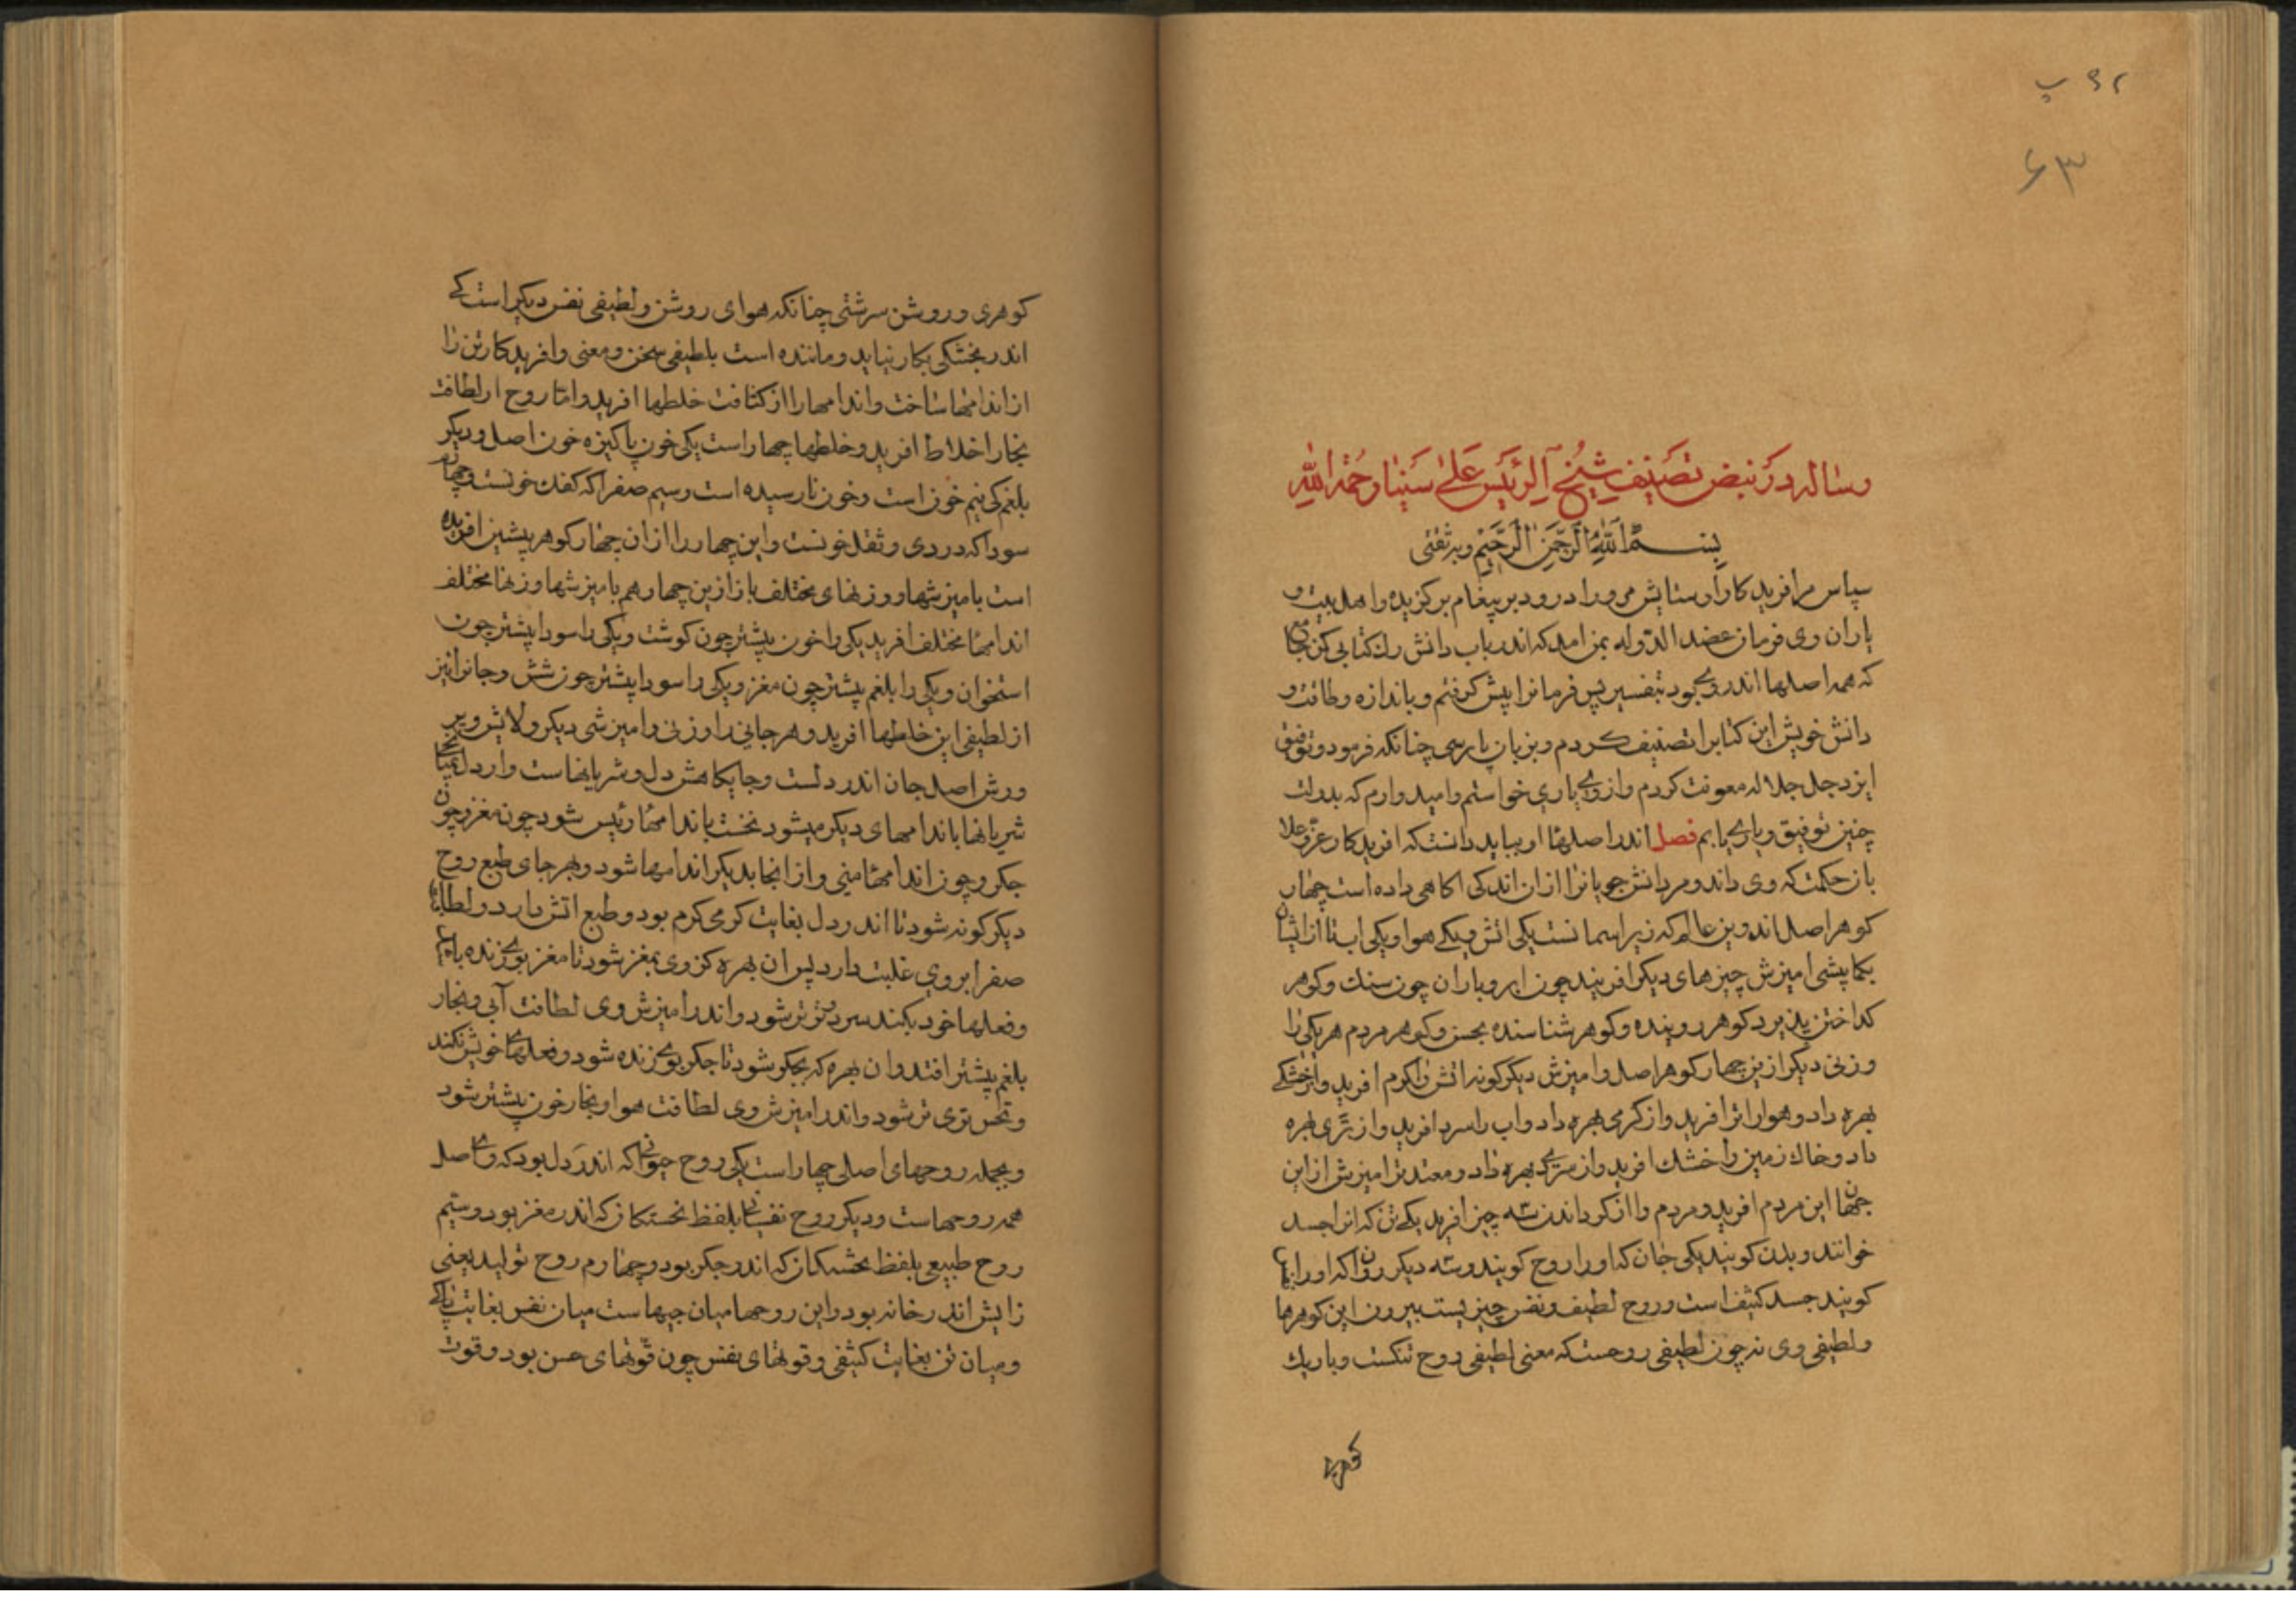 ۶۲ پ
۶۳
رساله در نبض تصنیف شیخ الرئیس علی سینا رحمة الله
بسم الله الرحمن الرحیم وبه ثقتی
سپاس مرافریدکار را وستایش مرورا درود بر پیغام برکزیده واهل بیت و
یاران وی فرمان عضد الدوله بمن امد که اندر باب دانش رك کتابی کن
که همه اصلها اندر وی بود بتفسیر پس فرمانرا پیش کرفتم وباندازه وطاقت و
دانش خویش این کتابرا تصنیف کردم وبزبان پارسی چنانکه فرمود وتوفیق
ایزد جل جلاله معونت کردم واز وی یاری خواستم وامیدوارم که بدولت
چنین توفیق ویاری یابم فصل اندر اصلها او بباید دانست که افریدکار عز وعلا
باز حکمت که وی داند ومر دانش جویانرا از ان اندکی اکاهی داده است چهار
کوهر اصل اندرین عالم که زیر اسمانست یکی اتش ویکی هوا ویکی اب تا از ایشان
بکمابیشی امیزش چیزهای دیکر افریند چون ابر وباران چون سنك وکوهر
کداختن پذیرد کوهر روینده وکوهر شناسنده بحس وکوهر مردم هر یکی را
وزنی دیکر ازین چهار کوهر اصل وامیزش دیکر کونه اتش را کرم افرید واز خشکی
بهره داد وهوارا تر افرید واز کرمی بهره داد واب را سرد افرید واز تری بهره
داد وخاك زمین را خشك افرید واز سردی بهره داد ومعتدلتر امیزش از این
جهان این مردم افرید ومردم را از کرد اندن سه چیز افرید یکی تن که انرا جسد
خوانند وبدن کویند یکی جان که اورا روح کویند وسه دیکر روان که اورا
کویند جسد کثیف است وروح لطیف ونفس چیزیست بیرون این کوهرها
ولطیفی وی نه چون لطیفی روحست که معنی لطیفی روح تنکست وباریك
کوهری
کوهری وروشن سرشتی چنانکه هوای روشن ولطیفی نفس دیکر است که
اندر بخشکی بکار نیاید وماننده است بلطیفی سخن ومعنی وافریدکار تن را
از اندامها ساخت واندامها را از کثافت خلطها افرید واما روح از لطافت
بخار اخلاط افرید وخلطها چهار است یکی خون پاکیزه خون اصل ودیکر
بلغم کی نیم خون است وخون نارسیده است وسیم صفرا که کفك خونست وچهارم
سودا که دردی وثقل خونست واین چهار را از ان چهار کوهر پیشین افریده
است بامیزشها ووزنهای مختلف باز ازین چهار هم بامیزشها وزنها مختلف
اندامها مختلف افرید یکی را خون بیشتر چون کوشت ویکی را سودا بیشتر چون
استخوان ویکی را بلغم بیشتر چون مغز ویکی را سودا بیشتر چون شش وجانرا نیز
از لطیفی این خلطها افرید وهر جانی را وزنی وامیزشی دیکر
ورش اصل جان اندر دلست وجایکاهش دل وشریانهاست واز دل
شریانها باندامهای دیکر میشود نخست باندامها رئیس شود چون مغز وچون
جکر وچون اندامها منی واز انجا بدیکر اندامها شود وبهر جای طبع روح
دیکر کونه شود تا اندر دل بغایت کرمی کرم بود وطبع اتش دارد ولطافت
صفرا بر وی غلبت دارد پس ان بهره کز وی بمغز شود تا مغز بوی زنده باشد
وفعلها خود بکند سرد وتر تر شود واندر امیزش وی لطافت آبی وبخار
بلغم بیشتر افتد وان بهره که بجکر شود تا جکر بوی زنده شود وفعلها خویش بکند
وتری تر شود واندر امیزش وی لطافت هوا وبخار خون بیشتر شود
وبجمله روحهای اصلی چهار است یکی روح حیوانی که اندر دل بود که وی اصل
همه روحهاست ودیکر روح نفسانی بلفظ نخستکان که اندر مغز بود وسیم
روح طبیعی بلفظ که اندر جکر بود وچهارم روح تولید یعنی
زایش اندر خانه بود واین روحها میان جیهاست میان نفس بغایت پاکی
ومیان تن بغایت کثیفی وقوتهای نفس چون قوتهای حس بود وقوت